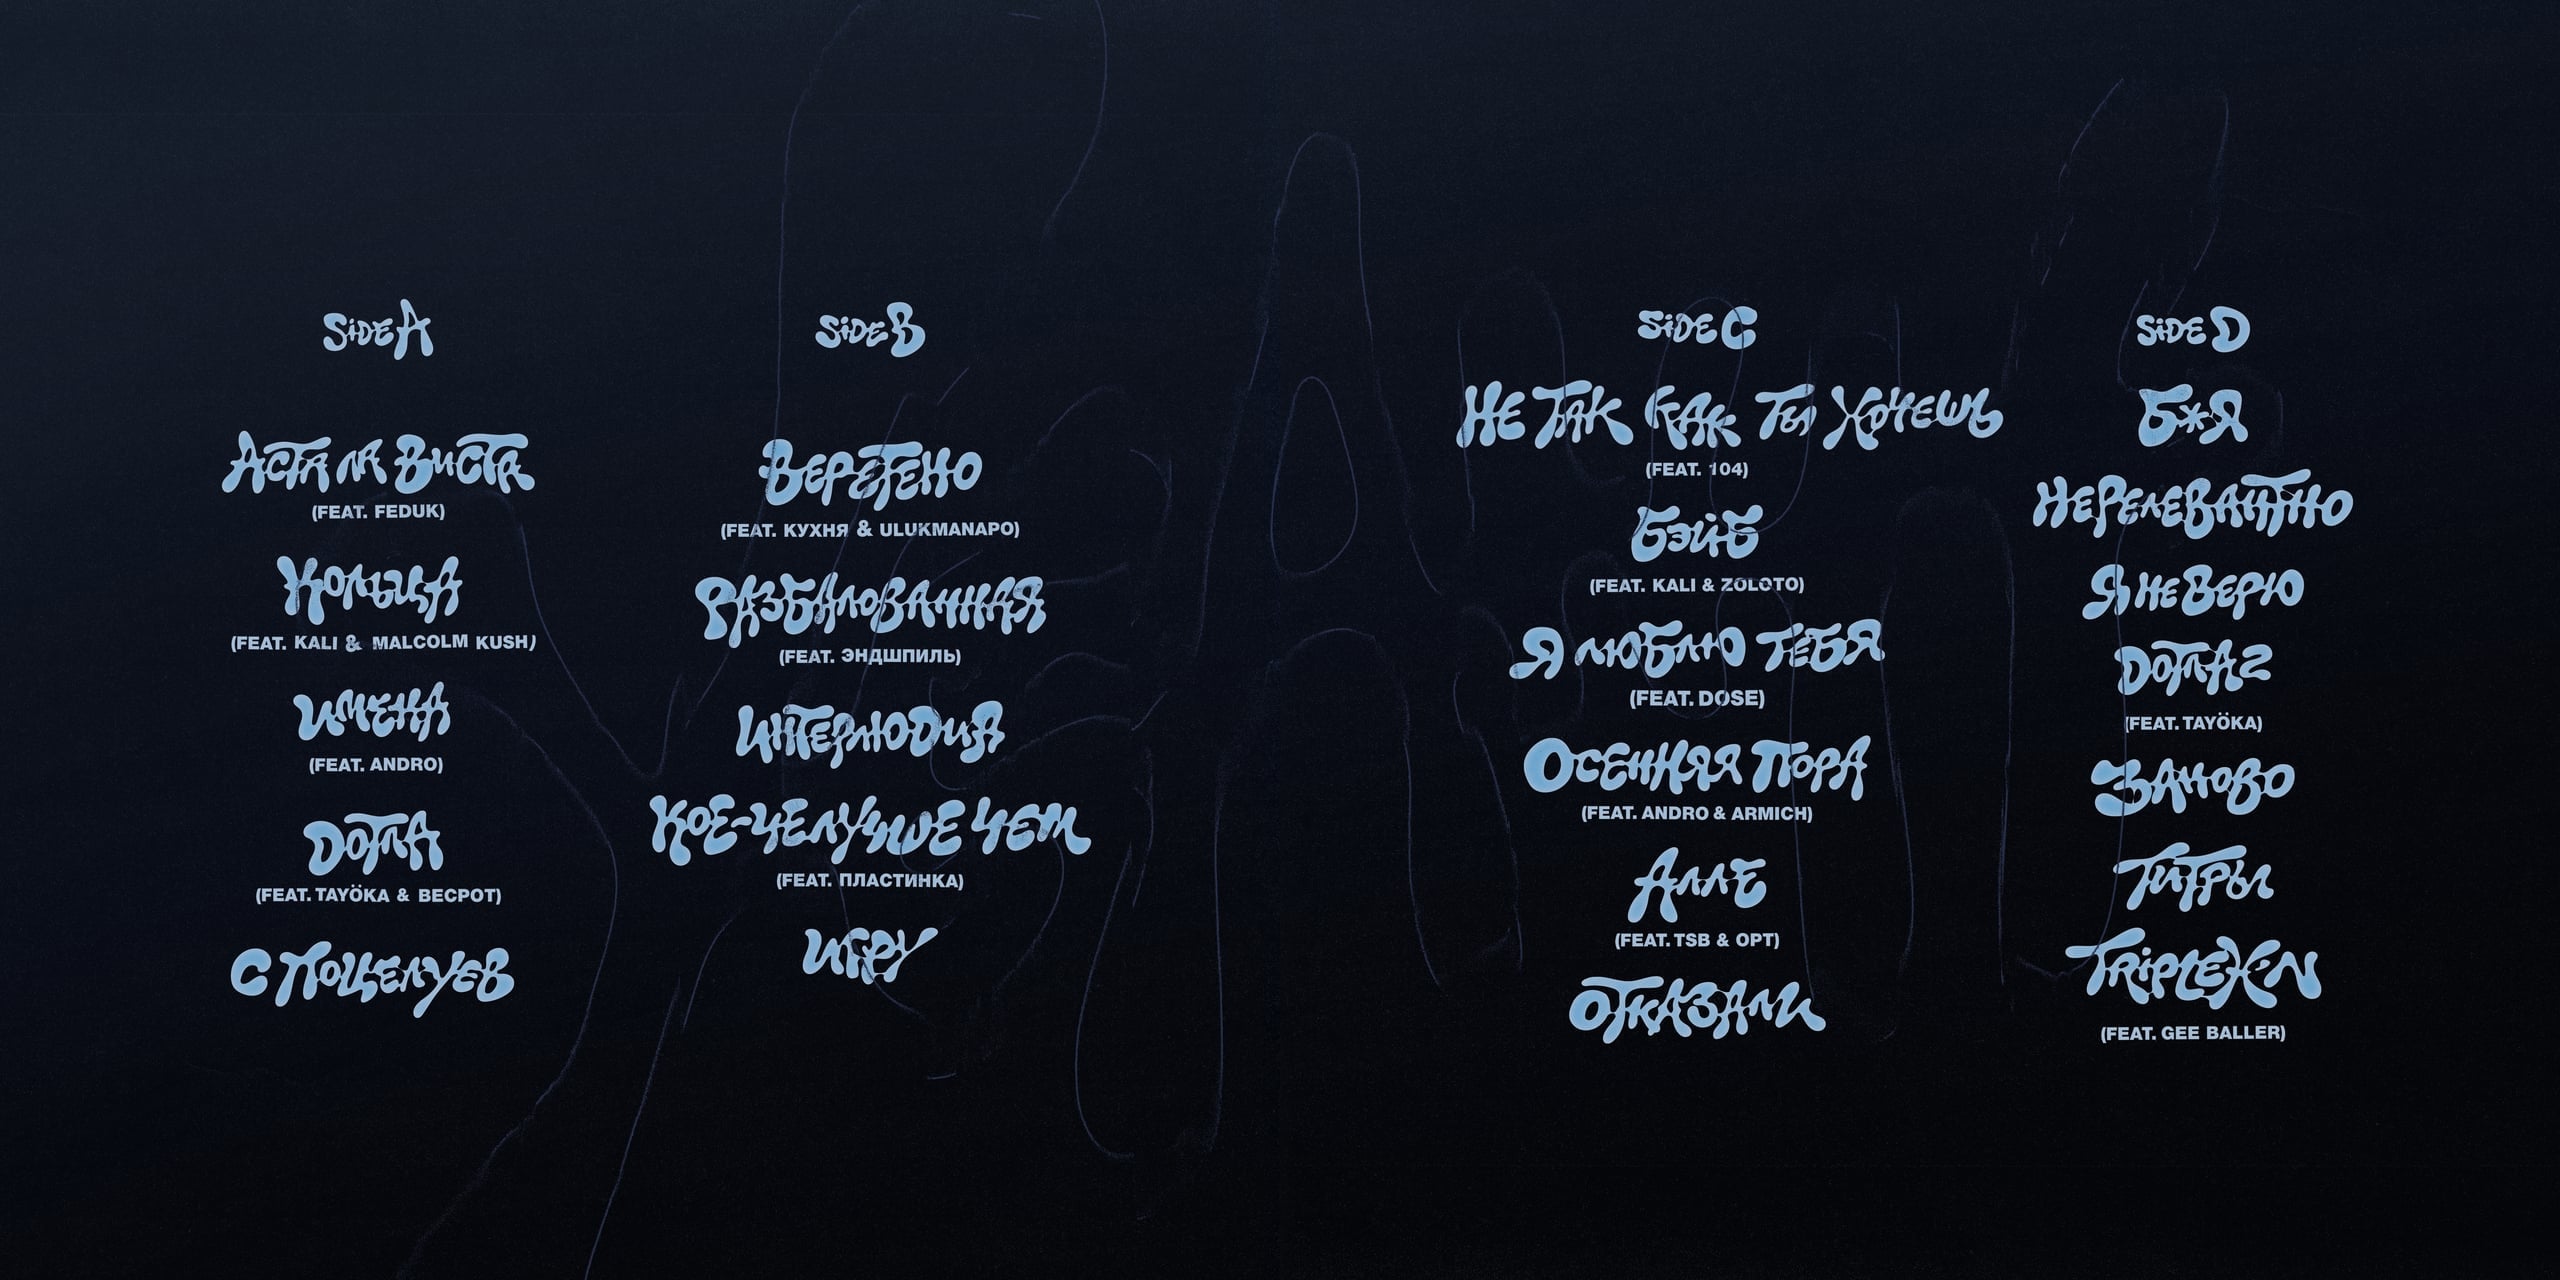 SiDE A
АСТА ЛА ВИСТА
(FEAT. FEDUK)
КОЛЬЦА
(FEAT. KALI & MALCOLM KUSH)
ИМЕНА
(FEAT. ANDRO)
ДОТЛА
(FEAT. TAYÖKA & ВЕСРОТ)
С ПОЦЕЛУЕВ
SiDE B
ВЕРЕТЕНО
(FEAT. КУХНЯ & ULUKMANAPO)
РАЗБАЛОВАННАЯ
(FEAT. ЭНДШПИЛЬ)
ИНТЕРЛЮДИЯ
КОЕ-ЧЕЛУЧШЕ ЧЕМ
(FEAT. ПЛАСТИНКА)
ИГРУ
SiDE C
НЕ ТАК КАК ТЫ ХОЧЕШЬ
(FEAT. 104)
БЭЙБ
(FEAT. KALI & ZOLOTO)
Я ЛЮБЛЮ ТЕБЯ
(FEAT. DOSE)
ОСЕННЯЯ ПОРА
(FEAT. ANDRO & ARMICH)
АЛЛЕ
(FEAT. TSB & OPT)
ОТКАЗАЛИ
SiDE D
Б*Я
НЕРЕЛЕВАНТНО
Я НЕ ВЕРЮ
ДОТЛА2
(FEAT. TAYÖKA)
ЗАНОВО
ТИТРЫ
TRiPLEX'N
(FEAT. GEE BALLER)